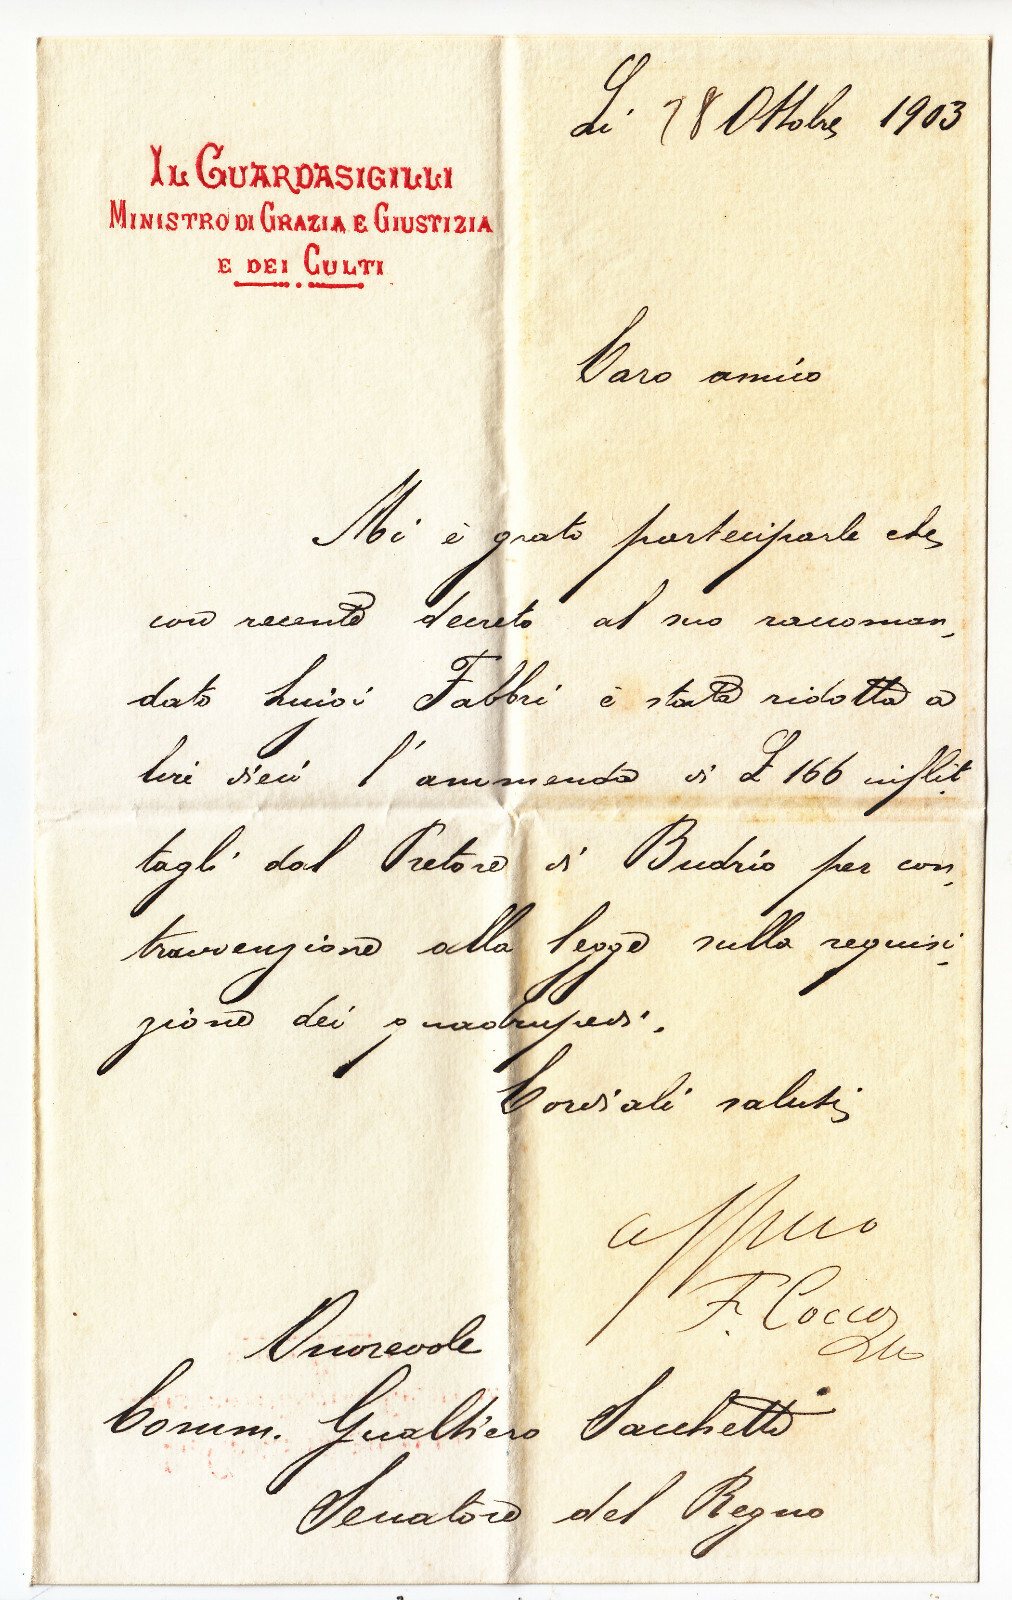 Li 28 Ottobre 1903
IL GUARDASIGILLI
MINISTRO DI GRAZIA E GIUSTIZIA
E DEI CULTI
Caro amico
Mi è grato parteciparle che
con recente decreto al suo raccoman-
dato Luigi Fabbri è stata ridotta a
lire dieci l'ammenda di £ 166 inflit-
tagli dal Pretore di Budrio per con-
travvenzione alla legge sulla requisi-
zione dei quadrupedi.
Cordiali saluti
affmo
F. Cocco
Onorevole
Comm. Gualtiero Sacchetti
Senatore del Regno